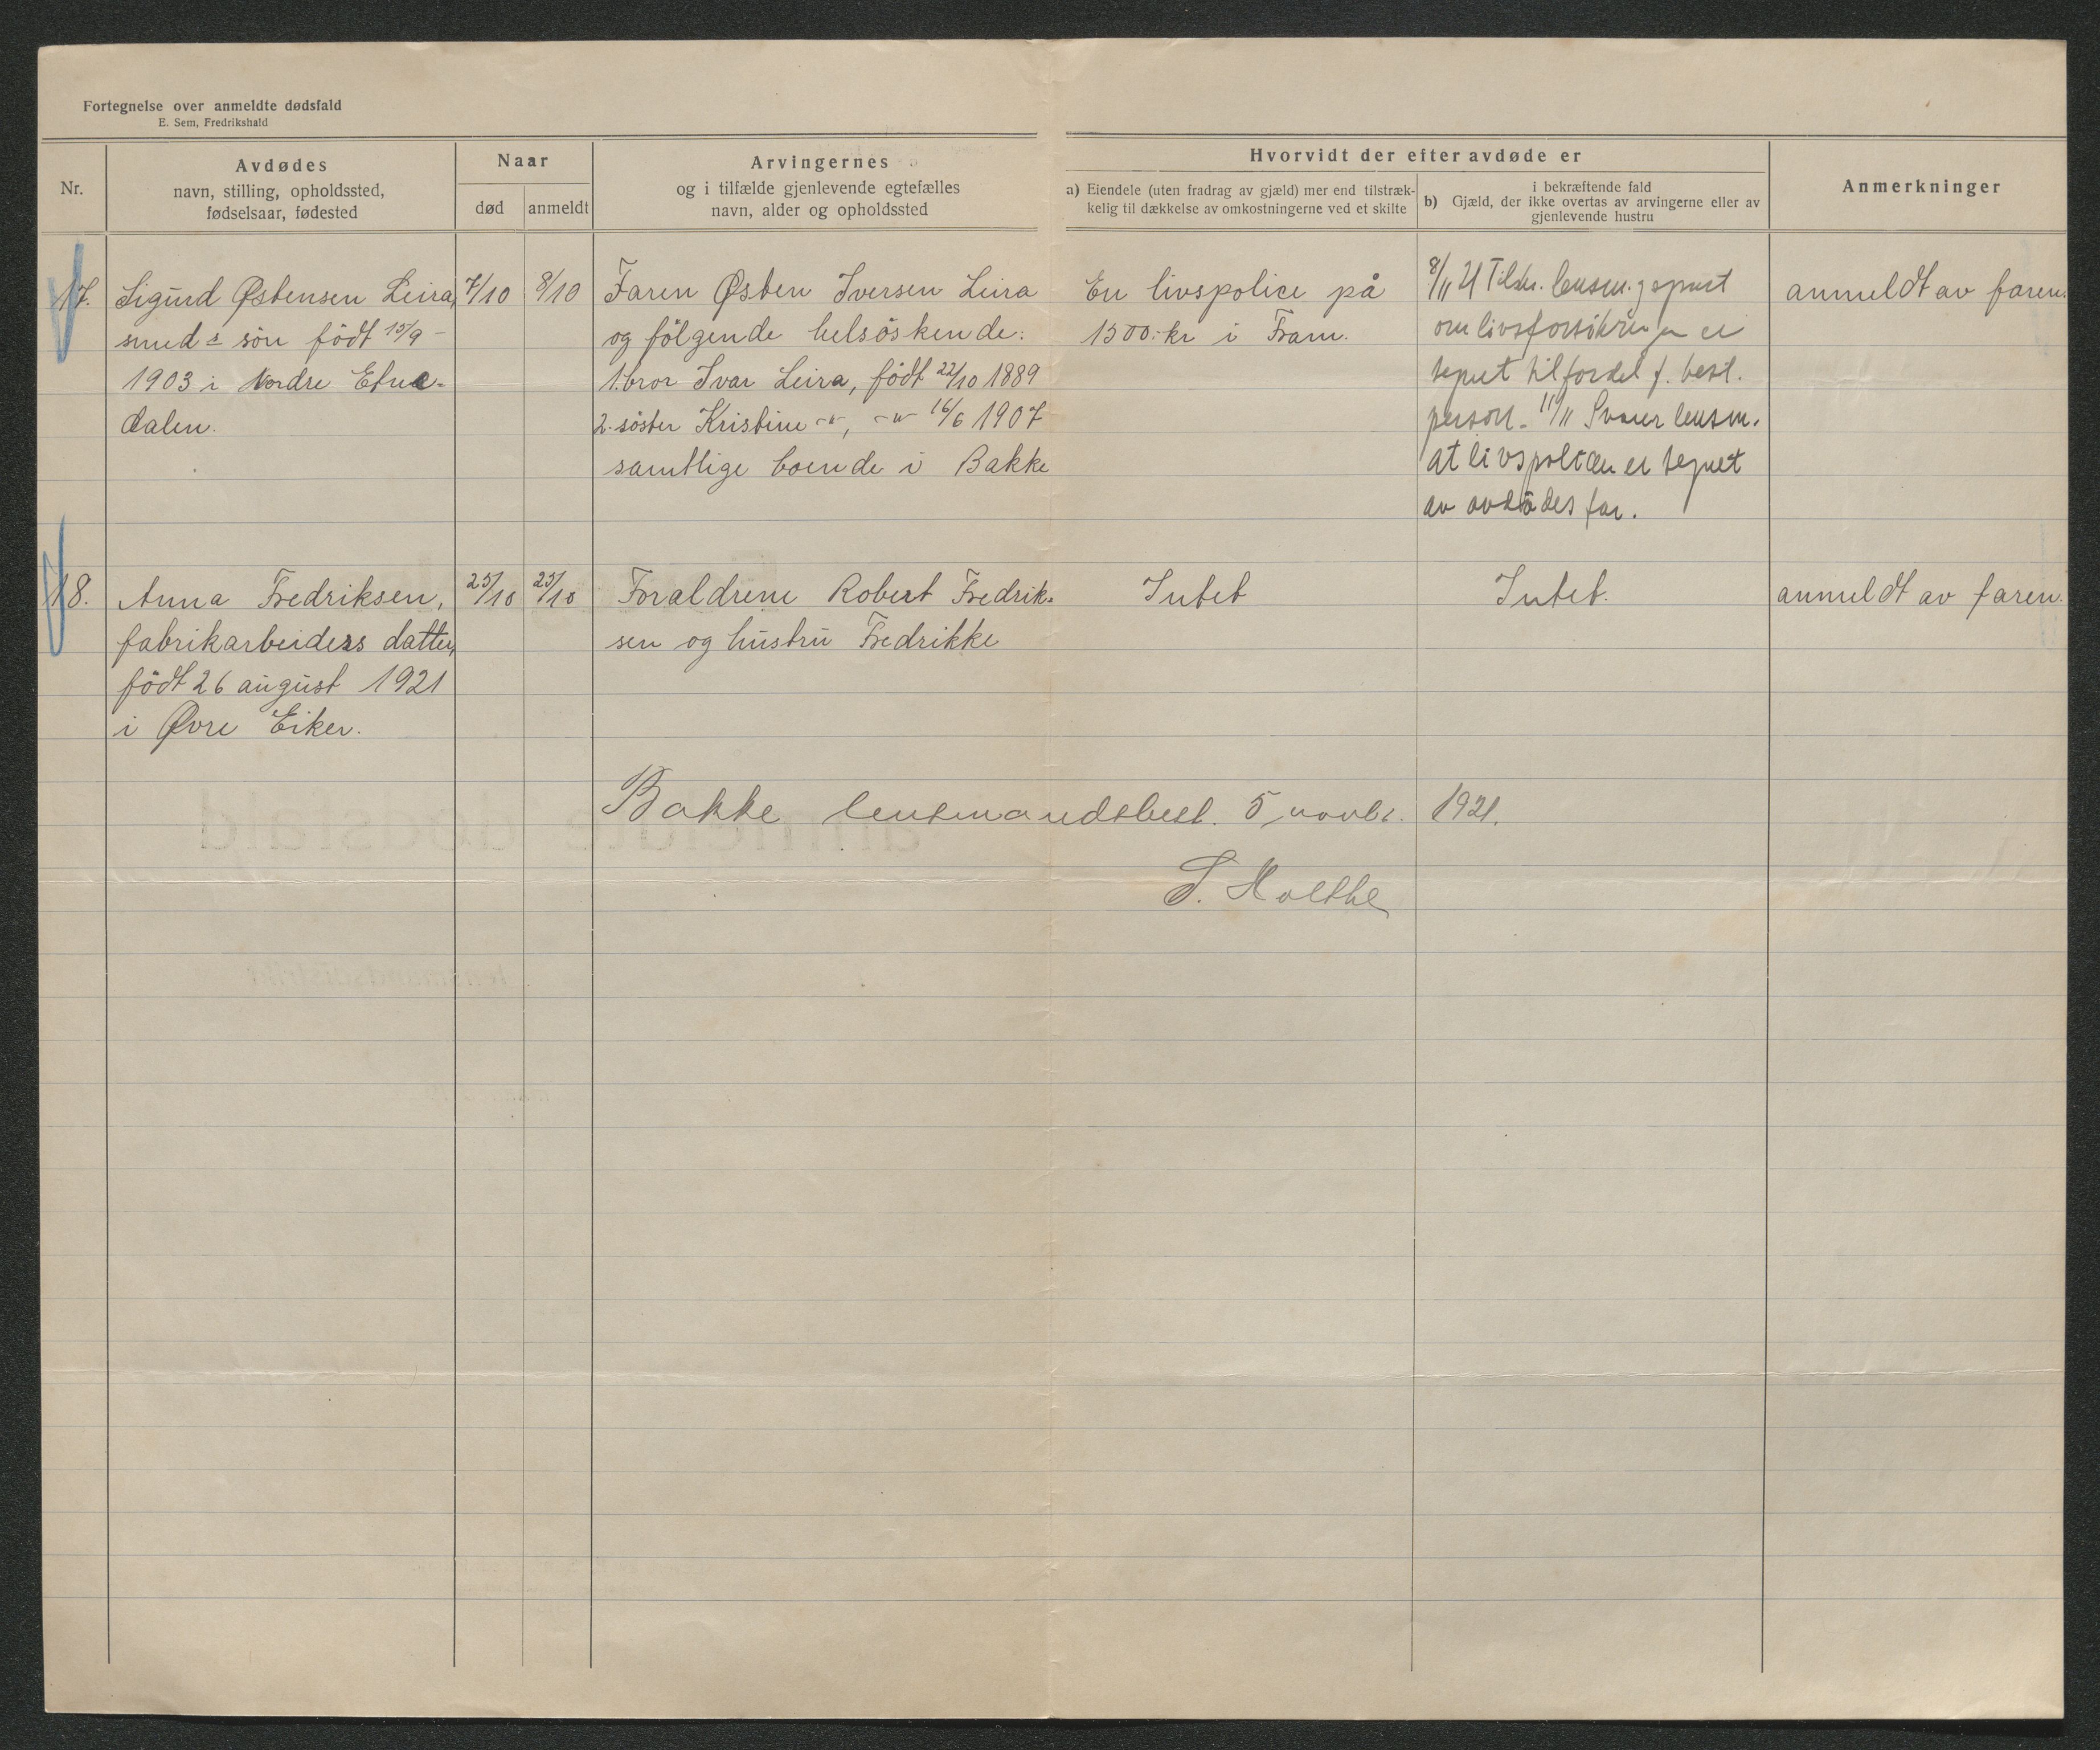 Fortegnelse over anmeldte dødsfald
E. Sem, Fredrikshald
Nr.
Avdødes
navn, stilling, opholdssted,
fødselsaar, fødested
Naar
død
anmeldt
Arvingernes
og i tilfælde gjenlevende egtefælles
navn, alder og opholdssted
Hvorvidt der efter avdøde er
a) Eiendele (uten fradrag av gjæld) mer end tilstræk-
kelig til dækkelse av omkostningerne ved et skilte
i bekræftende fald
b) Gjæld, der ikke overtas av arvingerne eller av
gjenlevende hustru
Anmerkninger
17.
Sigurd Østensen Leira,
smeds sön födt 15/9 -
1903 i Nordre Etne-
dalen.
7/10
8/10
Faren Østen Iversen Leira
og fölgende helsöskende:
1. bror Ivar Leira, födt 22/10 1889
2. söster Kristine -"-, -"- 16/6 1907
samtlige boende i Bakke
En livspolice på
1500:- kr i Fram.
8/11 21 Tilskr. lensm. g spurt
om livsforsikringen er
tegnet til fordel f. best.
person. 11/11 Svarer lensm.
at livspolicen er tegnet
av avdödes far.
anmeldt av faren.
18.
Anna Fredriksen,
fabrikarbeiders datter,
födt 26 august 1921
i Øvre Eiker.
25/10
25/10
Foraldrene Robert Fredrik-
sen og hustru Fredrikke
Intet
Intet.
anmeldt av faren.
Bakke lensmandsbest. 5 novbr. 1921.
T. Holthe